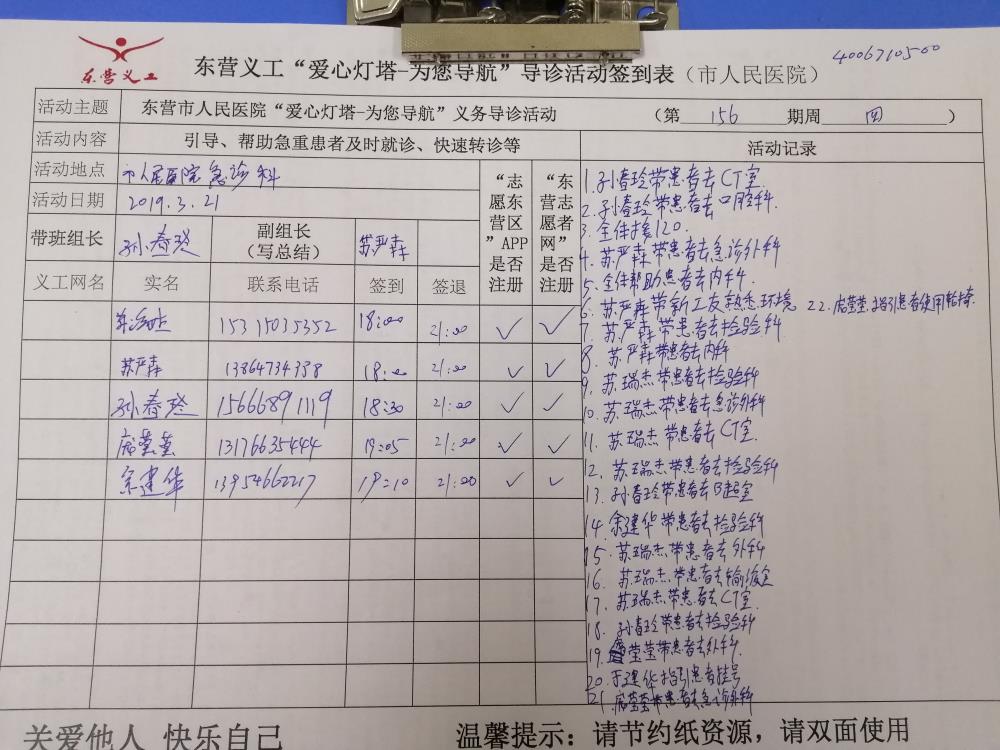 东营义工
东营义工“爱心灯塔-为您导航”导诊活动签到表（市人民医院）
4006710500
活动主题 东营市人民医院“爱心灯塔-为您导航”义务导诊活动 （第 156 期周 四 ）
活动内容 引导、帮助急重患者及时就诊、快速转诊等
活动记录
活动地点 市人民医院急诊科
活动日期 2019.3.21
“志愿东营区”APP是否注册
“东营志愿者网”是否注册
带班组长 孙春玲 副组长（写总结） 苏严森
义工网名 实名 联系电话 签到 签退
15315035352 18:00 21:00 ✓ ✓
苏严森 13864734338 18:00 21:00 ✓ ✓
孙春玲 15666891119 18:30 21:00 ✓ ✓
庞莹莹 13176635444 19:05 21:00 ✓ ✓
余建华 13954662217 19:10 21:00 ✓ ✓
1. 孙春玲带患者去CT室.
2. 孙春玲带患者去口腔科.
3. 全体接120.
4. 苏严森带患者去急诊外科
5. 全体帮助患者去内科.
6. 苏严森带新工友熟悉环境
22. 庞莹莹指引患者使用轮椅.
7. 苏严森带患者去检验科.
8. 苏严森带患者去内科
9. 苏瑞杰带患者去检验科
10. 苏瑞杰带患者去急诊外科
11. 苏瑞杰带患者去CT室.
12. 苏瑞杰带患者去检验科
13. 孙春玲带患者去B超室
14. 余建华带患者去检验科
15. 苏瑞杰带患者去外科
16. 苏瑞杰带患者去输液室
17. 苏瑞杰带患者去CT室.
18. 孙春玲带患者去检验科
19. 莹莹带患者去外科.
20. 建华指引患者挂号
21. 庞莹莹带患者去急诊外科
关爱他人 快乐自己
温馨提示：请节约纸资源，请双面使用